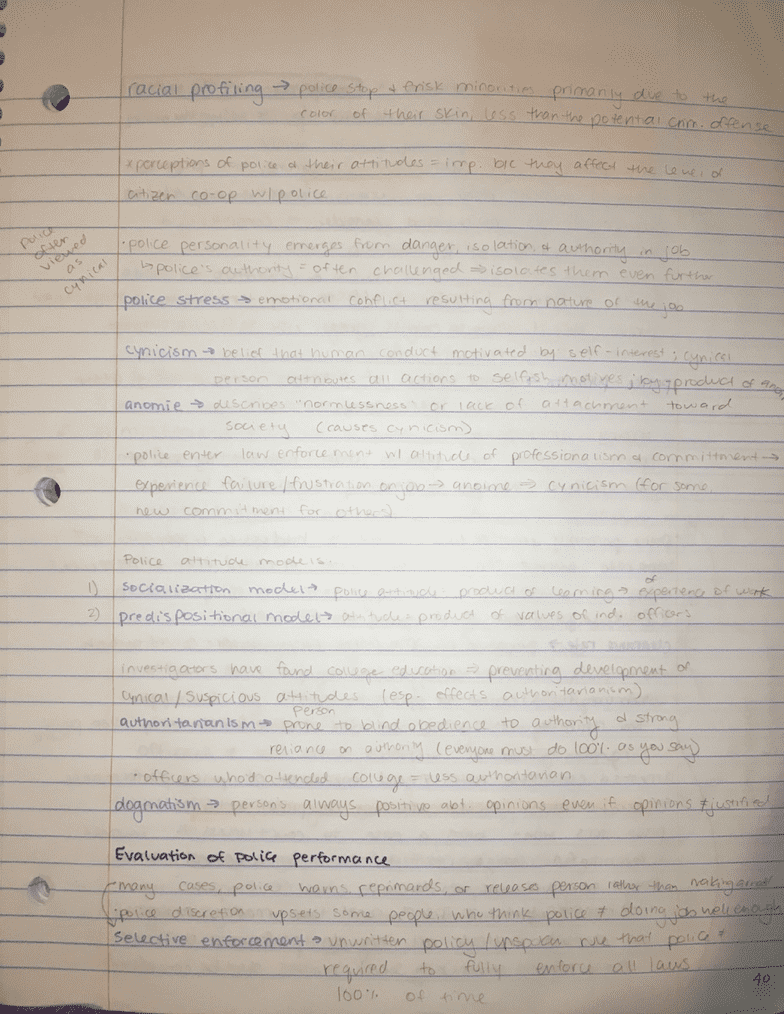 racial profiling → police stop & frisk minorities primarily due to the
color of their skin, less than the potential crim. offense
*perceptions of police & their attitudes = imp. b/c they affect the level of
citizen co-op w/ police
police
often
viewed
as
cynical
·police personality emerges from danger, isolation, & authority in job
↳police's authority = often challenged ⇒ isolates them even further
police stress → emotional conflict resulting from nature of the job
cynicism → belief that human conduct motivated by self-interest; cynical
person attributes all actions to selfish motives; by-product of
anomie → describes "normlessness" or lack of attachment toward
society (causes cynicism)
·police enter law enforcement w/ attitude of professionalism & committment →
experience failure/frustration on job → anomie ⇒ cynicism (for some,
new commitment for others)
Police attitude models:
1) socialization model → police attitude = product of learning → of experience of work
2) predispositional model → attitude = product of values of ind. officers
investigators have found college education ⇒ preventing development of
cynical/suspicious attitudes (esp. effects authoritarianism)
authoritarianism → person prone to blind obedience to authority & strong
reliance on authority (everyone must do 100% as you say)
·officers who'd attended college = less authoritarian
dogmatism → persons always positive abt. opinions even if opinions ≠ justified
Evaluation of Police performance
·many cases, police warns, reprimands, or releases person rather than making arrest
·police discretion upsets some people who think police ≠ doing job well enough
Selective enforcement → unwritten policy/unspoken rule that police ≠
required to fully enforce all laws
100% of time
40